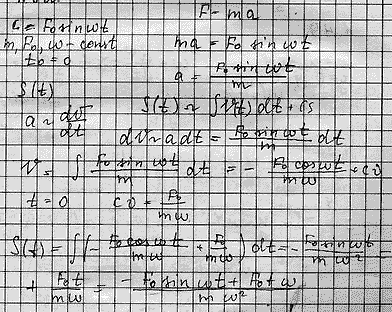 F = ma
F = F₀ sin ωt
m, F₀, ω - const
t₀ = 0
ma = F₀ sin ωt
a = F₀ sin ωt / m
S(t)
S(t) = ∫V(t) dt + Cs
a = dv/dt
dv = a dt = F₀ sin ωt / m dt
V = ∫ F₀ sin ωt / m dt = - F₀ cos ωt / mω + cv
t = 0 cv = F₀ / mω
S(t) = ∫(- F₀ cos ωt / mω + F₀ / mω) dt = - F₀ sin ωt / m ω² +
+ F₀ t / mω = - F₀ sin ωt + F₀ t ω / m ω²